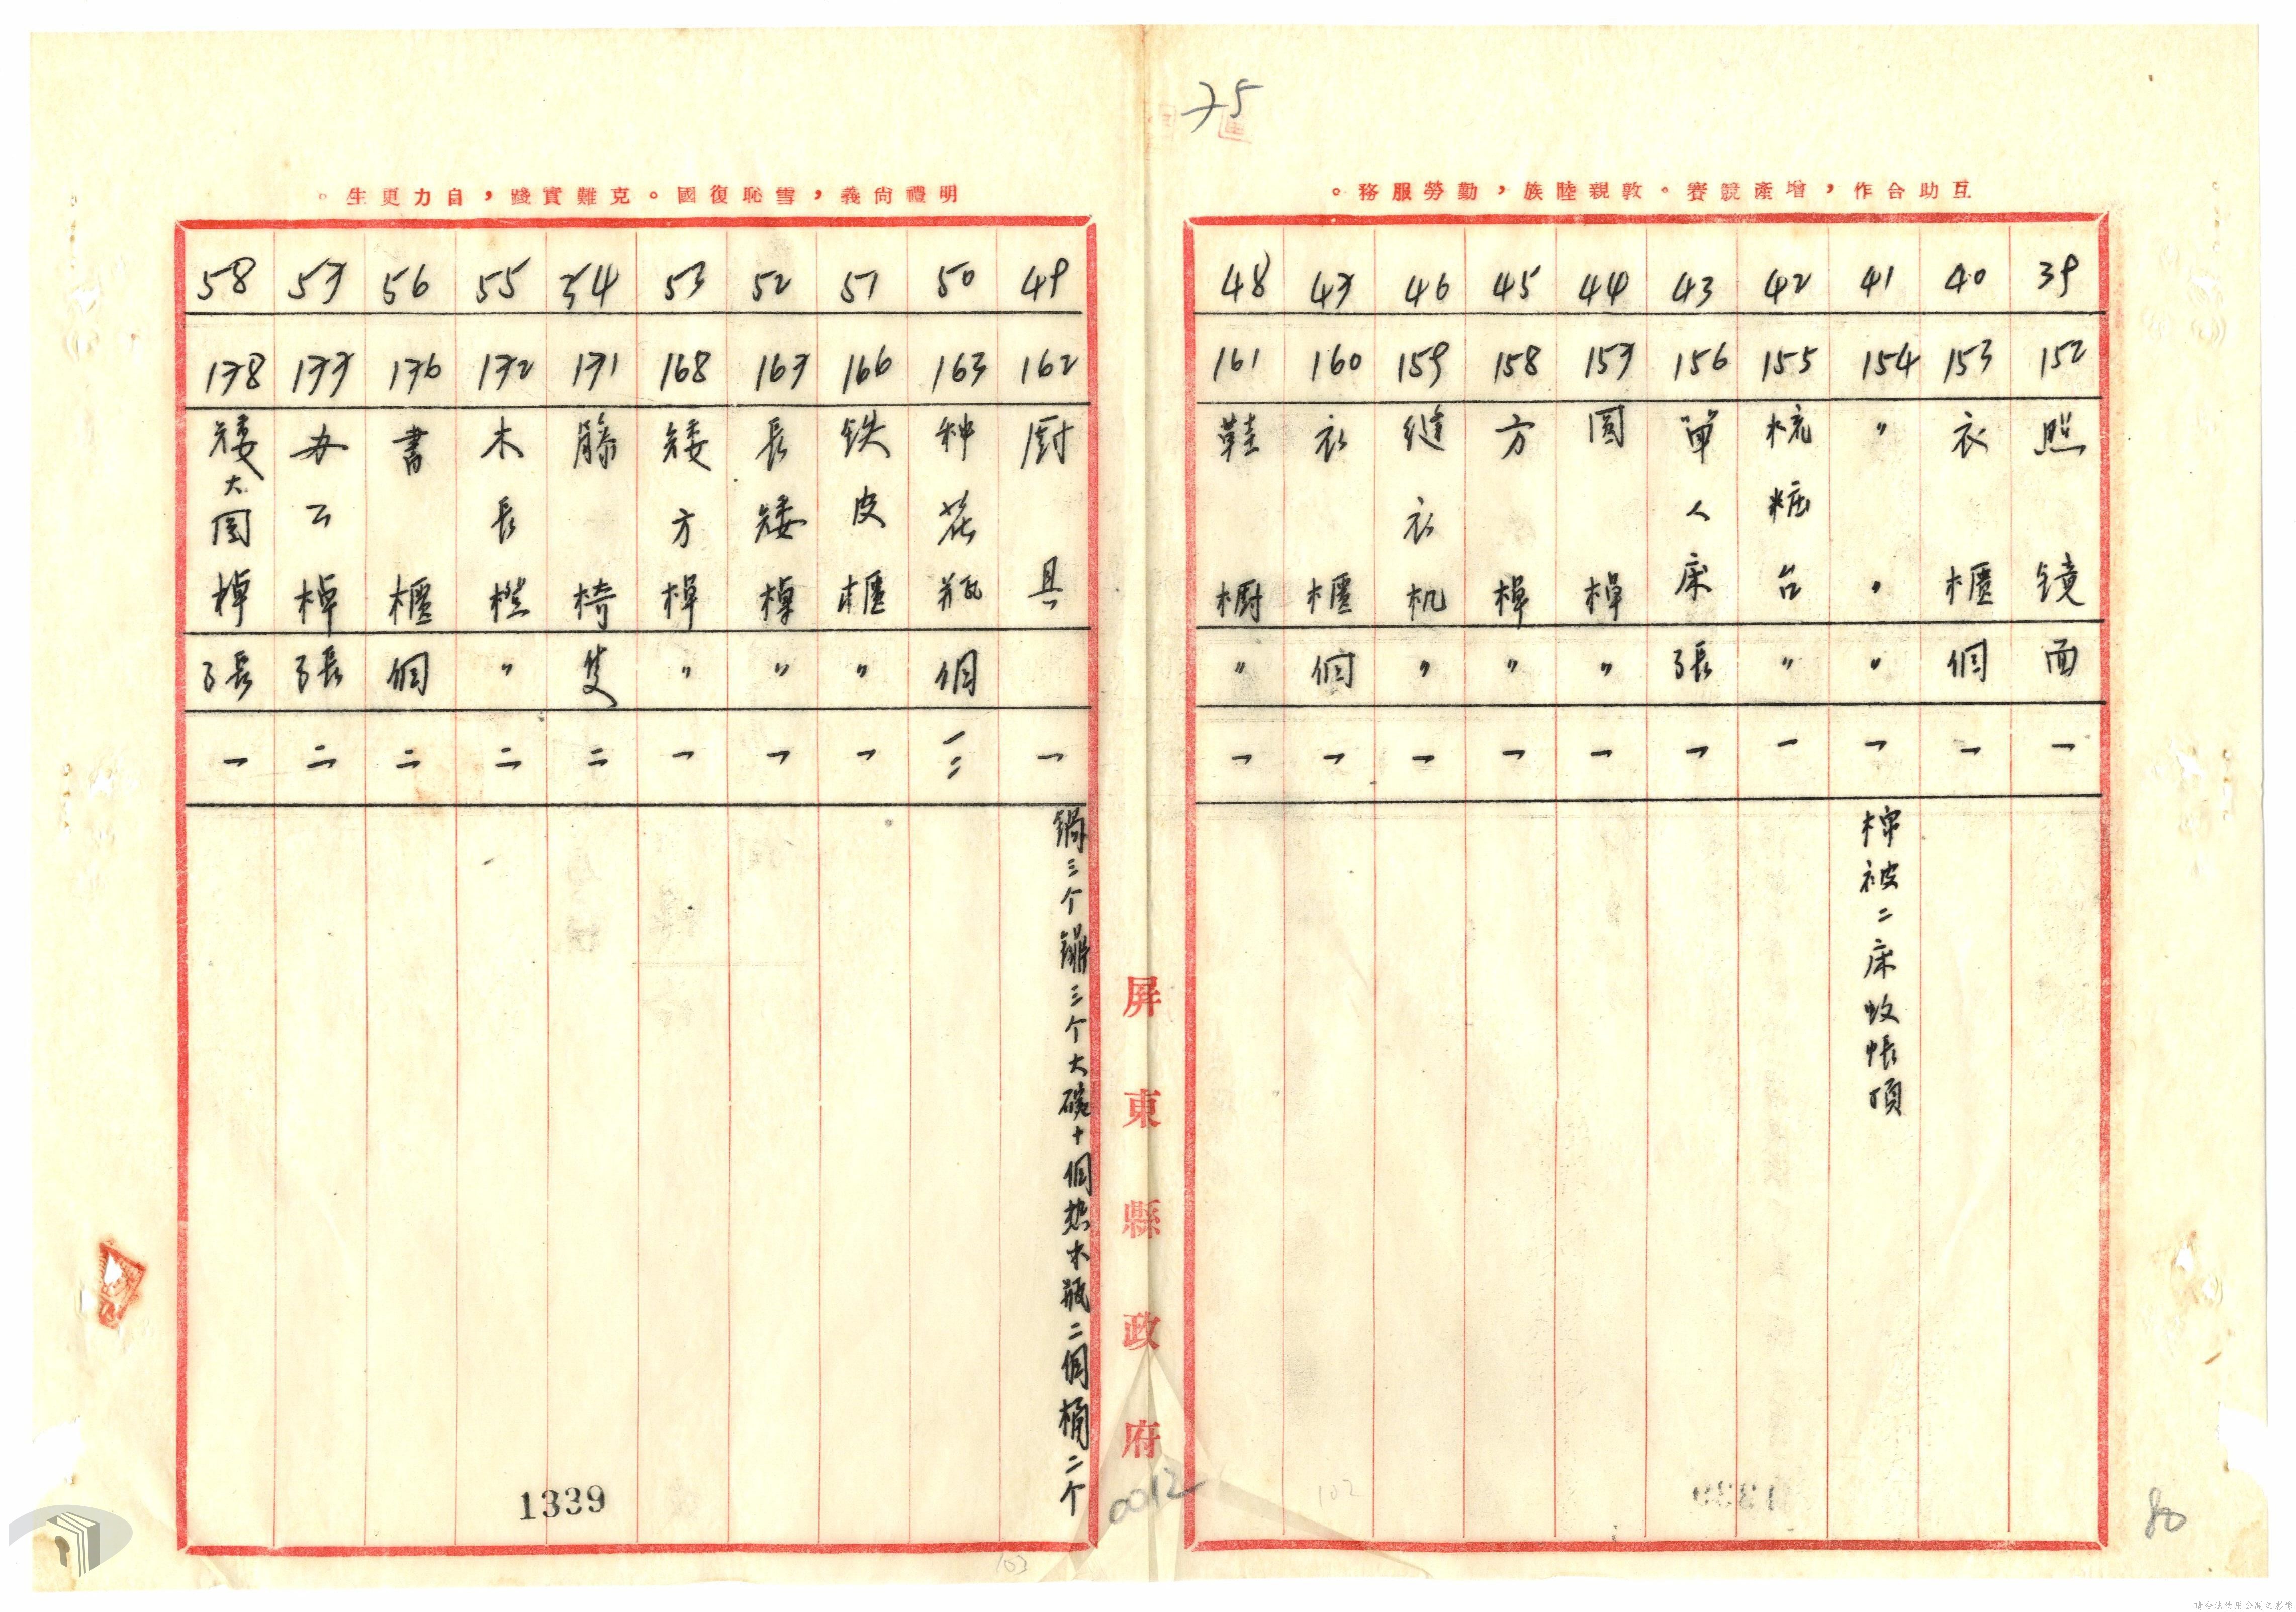 75
互助合作，增產競賽。敦親睦族，勤勞服務。
39 152 照鏡 面 一
40 153 衣櫃 個 一
41 154 〃 〃 〃 一 棉被二床蚊帳頂
42 155 梳粧台 〃 一
43 156 單人床 張 一
44 157 圓棹 〃 一
45 158 方棹 〃 一
46 159 縫衣机 〃 一
47 160 衣櫃 個 一
48 161 鞋櫥 〃 一
屏東縣政府
0012
明禮尚義，雪恥復國。克難實踐，自力更生。
49 162 厨具 一 鍋三个 三个大碗十個热水瓶二個桶二个
50 163 种花瓶 個 一二
51 166 鉄皮櫃 〃 一
52 167 長矮棹 〃 一
53 168 矮方棹 〃 一
54 171 籐椅 隻 二
55 172 木長櫈 〃 二
56 176 書櫃 個 二
57 177 办公棹 張 二
58 178 矮大圓棹 張 一
1339
102
103
80
請合法使用公開之影像